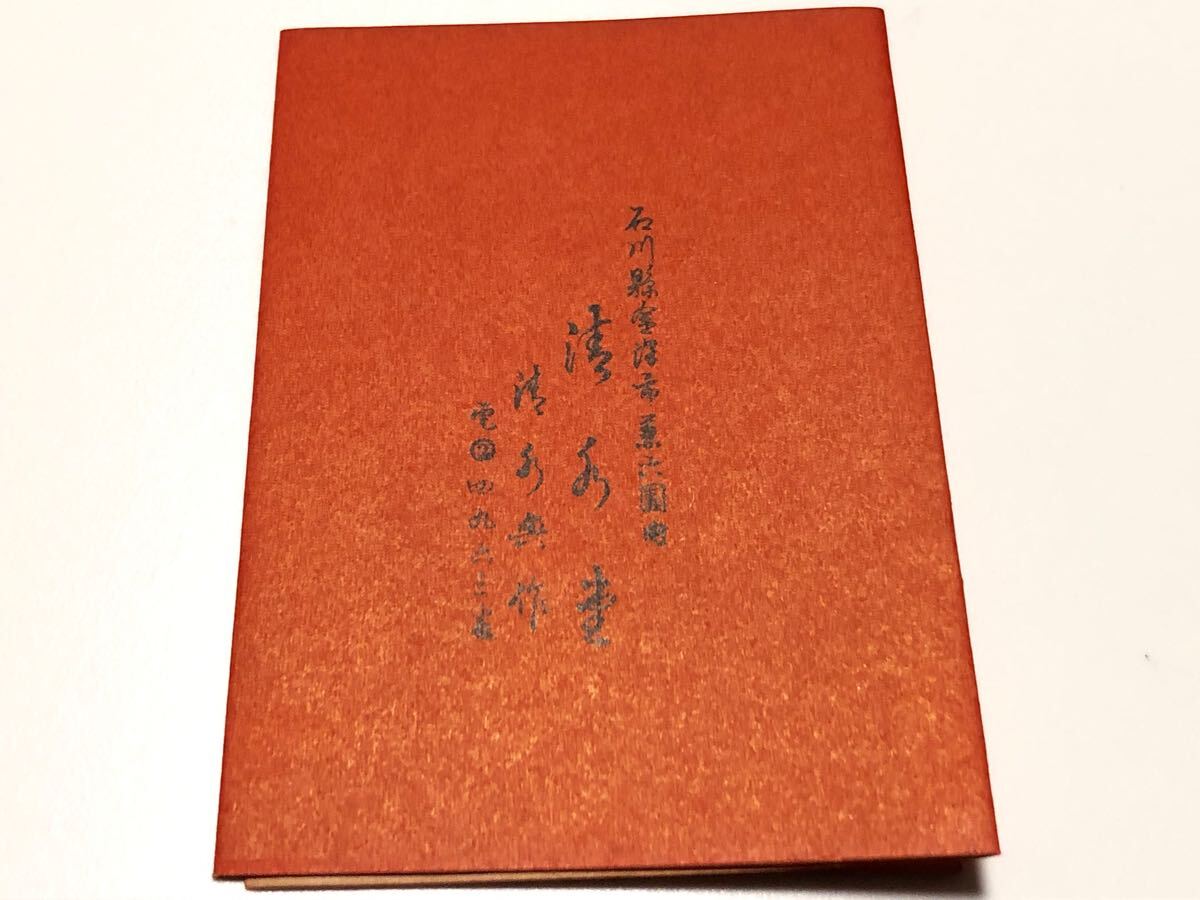 石川縣金澤市兼六園内
清水堂
清水與作
電②四九六三番